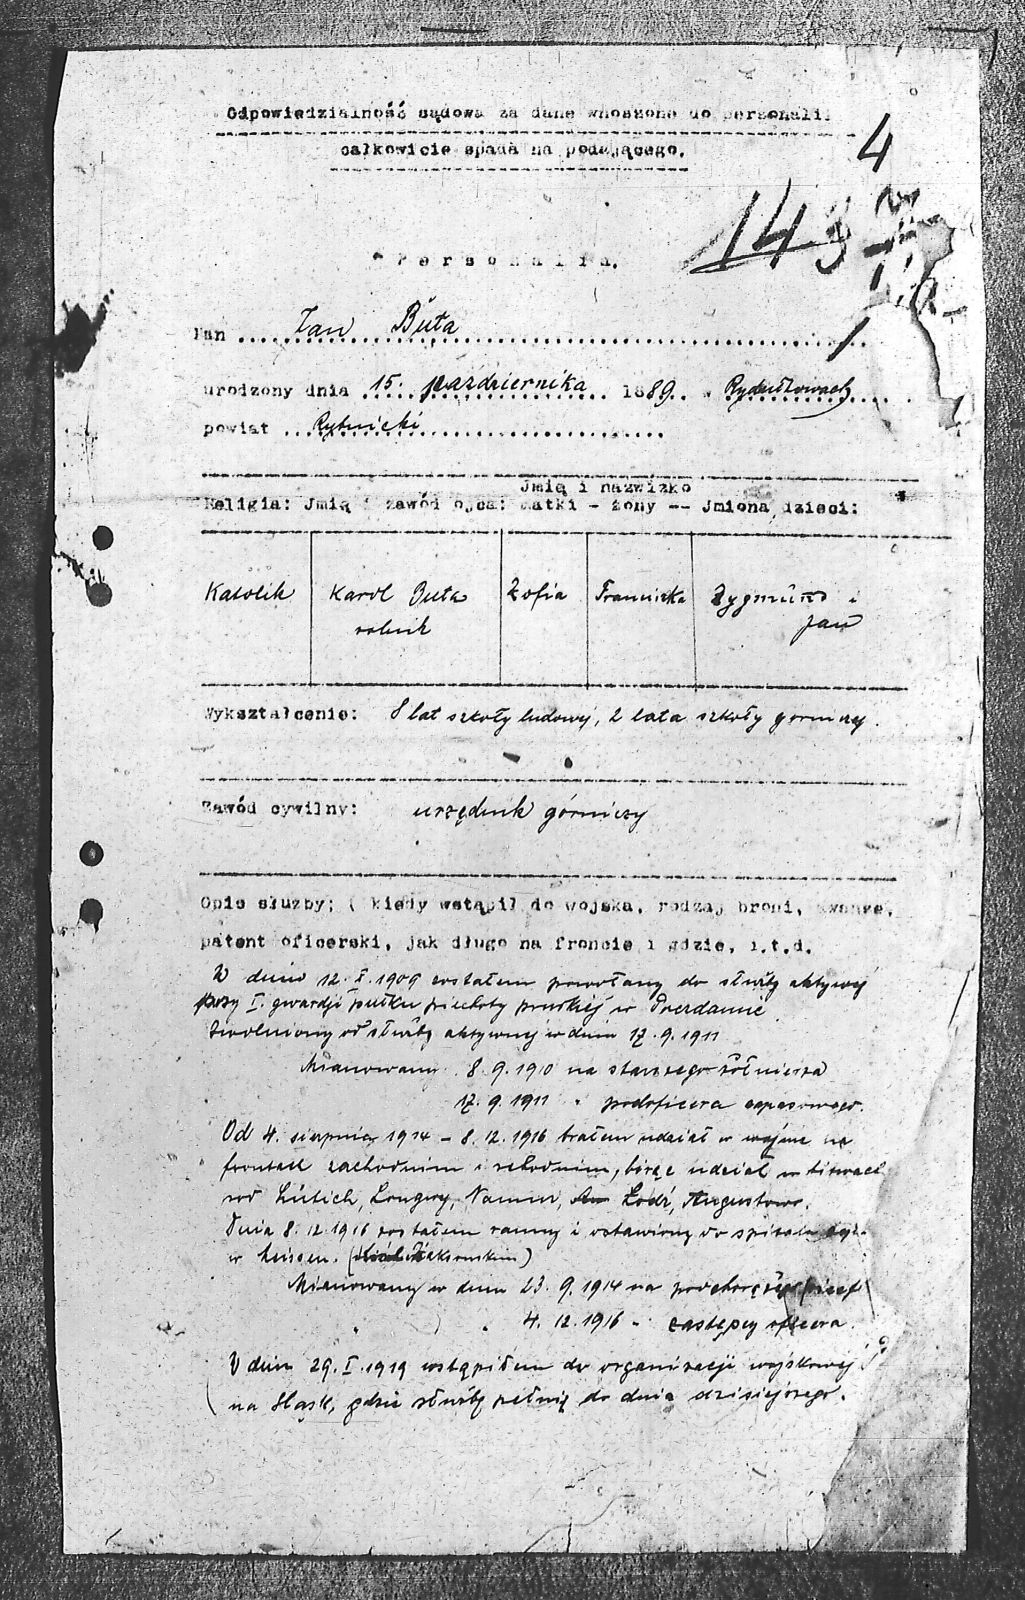 Odpowiedzialność sądowa za dane wnoszone do personalii
całkowicie spada na podającego.
4
143
Personalia.
Pan Jan Buta
urodzony dnia 15. października 1889. w Rydułtowach
powiat Rybnicki
Jmią i nazwizko
Religia: Jmią i zawód ojca: matki - żony -- Jmiona dzieci:
Katolik Karol Buta Zofia Franciszka Zygmund i
rolnik Jan
Wykształcenie: 8 lat szkoły ludowej, 2 lata szkoły górniczej.
Zawód cywilny: urzędnik górniczy
Opis służby; ( kiedy wstąpił do wojska, rodzaj broni, awanse,
patent oficerski, jak długo na froncie i gdzie, i.t.d.
W dniu 12. X. 1909 zostałem powołany do służby aktywej
przy I. gwardji pułku piechoty pruskiej w
Zwolniony od służby aktywnej w dniu 17.9.1911
Mianowany 8.9.1910 na starszego żołnierza
17.9.1911 " podoficera zapasowego.
Od 4. sierpnia 1914 - 8.12.1916 brałem udział w wojnie na
frontach zachodnim i wschodnim, biorąc udział w bitwach
pod Lütich, Longwy, Namur, Łodź, Augustowo.
Dnia 8.12.1916 zostałem ranny i odstawiony do szpitala
w
Mianowany w dniu 23.9.1914 na
4.12.1916 " zastępcy oficera.
W dniu 29. I. 1919 wstąpiłem do organizacji wojskowej
na Śląsk, gdzie służbę pełnię do dnia dzisiejszego.